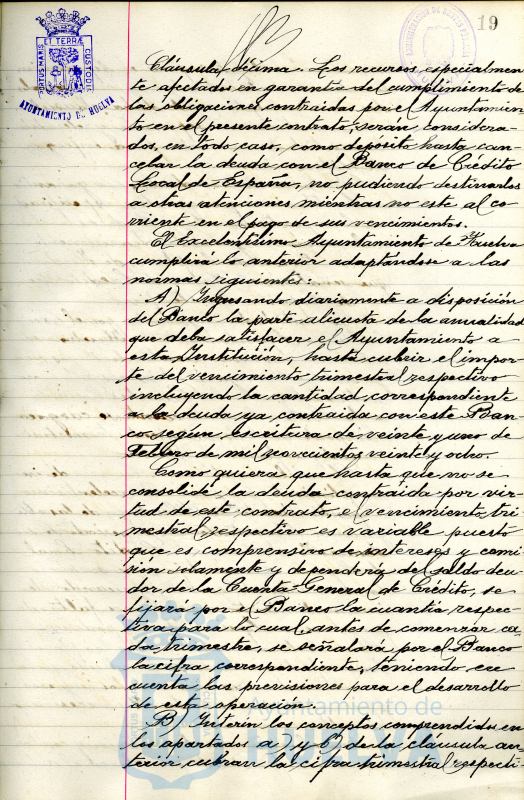 19
PORTUS MARIS ET TERRÆ CUSTODIA
AYUNTAMIENTO DE HUELVA
Cláusula décima. Los recursos, especialmen-
te afectados en garantía del cumplimiento de
las obligaciones contraidas por el Ayuntamien-
to en el presente contrato, serán considera-
dos, en todo caso, como depósito hasta can-
celar la deuda con el Banco de Crédito
Local de España, no pudiendo destinarlos
a otras atenciones mientras no este al co-
rriente en el pago de sus vencimientos.
El Excelentísimo Ayuntamiento de Huelva
cumplirá lo anterior adaptándose a las
normas siguientes:
A) Ingresando diariamente a disposición
del Banco la parte alicuota de la anualidad
que deba satisfacer el Ayuntamiento a
esta Institución, hasta cubrir el impor-
te del vencimiento trimestral respectivo
incluyendo la cantidad correspondiente
a la deuda ya contraida con este Ban-
co según escritura de veinte y uno de
Febrero de mil novecientos veinte y ocho.
Como quiera que hasta que no se
consolide la deuda contraida por vir-
tud de este contrato, el vencimiento tri-
mestral respectivo es variable puesto
que es comprensivo de intereses y comi-
sión solamente y dependerá del saldo deu-
dor de la Cuenta General de Crédito, se
fijara por el Banco la cuantía respec-
tiva para lo cual, antes de comenzar ca-
da trimestre, se señalará por el Banco
la cifra correspondiente, teniendo en
cuenta las previsiones para el desarrollo
de esta operación.
B) Interin los conceptos comprendidos en
los apartados a) y b) de la cláusula an-
terior cubran la cifra trimestral respecti-
Ayuntamiento de
HUELVA